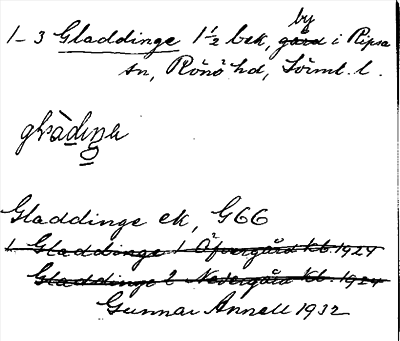 by
1-3 Gladdinge 1½ bek, gård i Ripsa
sn, Rönö hd, Sörml. l.
Gladdinge ek, G66
1 Gladdinge 1 Öfvergård kb. 1924
Gladdinge 2 Nedergård kb. 1924
Gunnar Annell 1932